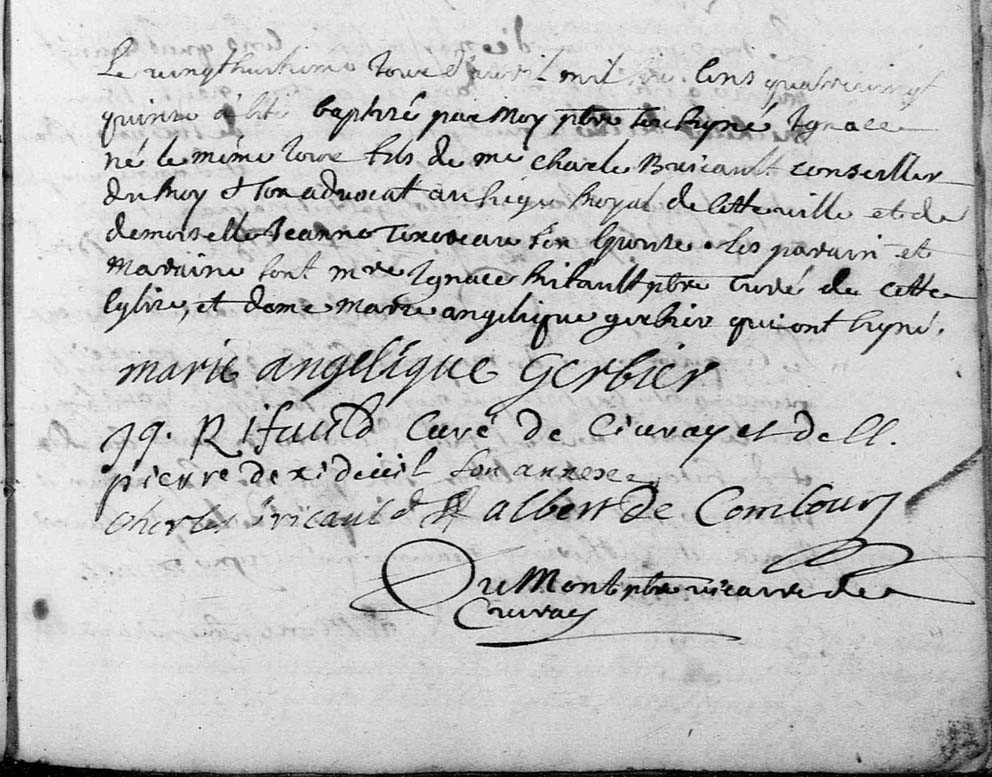 Le vingthuitieme Jour d'avril mil six Cens quatrevingt
quinze a esté baptisé par moy pbre soubsigné Ignace
né le même Jour fils de me Charle Bricault conseiller
du Roy & son advocat au siege Royal de Cette ville et de
demoiselle Jeanne Texereau son Epouse. Les parain et
Maraine sont mre Ignace Rifault pbre Curé de cette
Eglise, et dame Marie angelique gerbier qui ont signé.
marie angelique Gerbier
Ig. Rifauld Curé de Civray et de St.
pierre de son annexe
Charle Bricauld albert de Comlours
DuMont pbre vicaire de
Civray